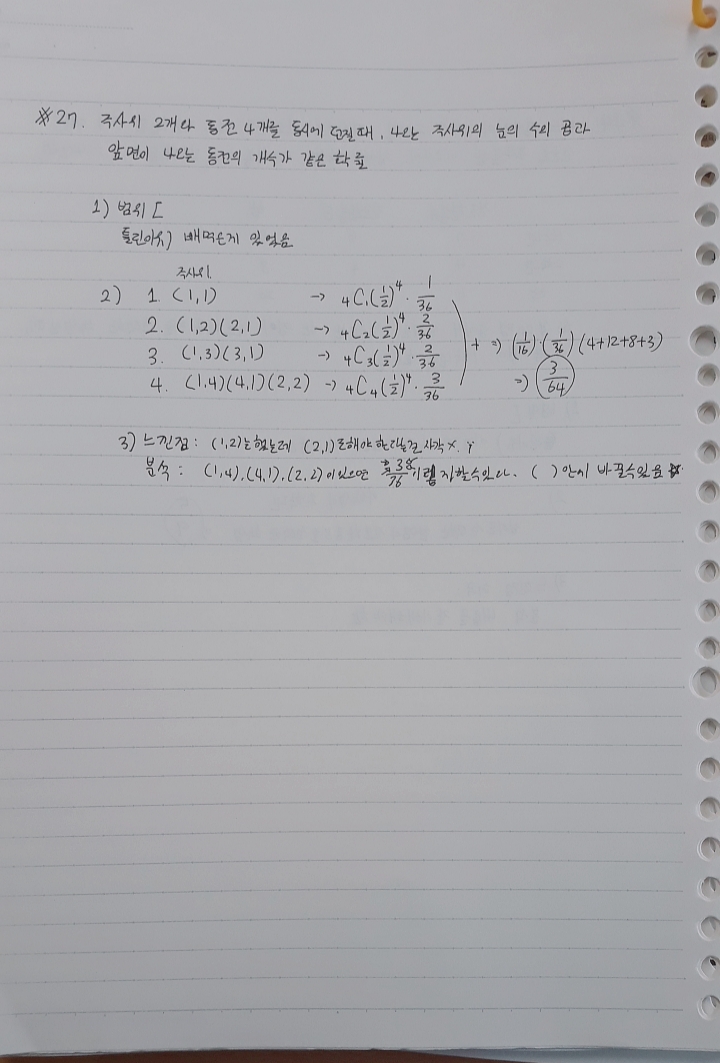 ※27. 주사위 2개와 동전 4개를 동시에 던질때, 나오는 주사위의 눈의 수의 곱과
앞면이 나오는 동전의 개수가 같은 확률
1) 범위 [
틀린이유) 빼먹은게 있었음
주사위
2) 1. (1,1) → ₄C₁(1/2)⁴ · 1/36
2. (1,2)(2,1) → ₄C₂(1/2)⁴ · 2/36
3. (1,3)(3,1) → ₄C₃(1/2)⁴ · 2/36
4. (1,4)(4,1)(2,2) → ₄C₄(1/2)⁴ · 3/36
+ ⇒ (1/16)·(1/36)(4+12+8+3)
⇒ 3/64
3) 느낀점 : (1,2)는했는데 (2,1)도해야한다는건 생각 x.
분석 : (1,4), (4,1), (2,2) 이있으면 이렇게 할수있다. ( ) 안시 바꿀수있음